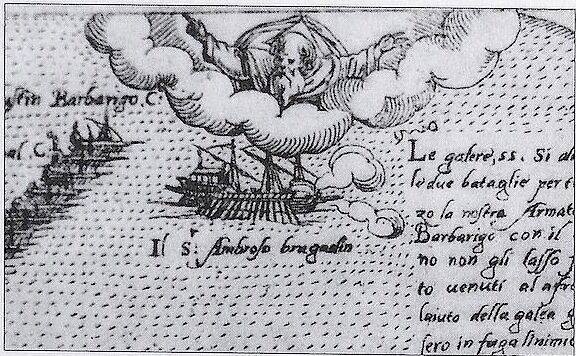 stin Barbarigo. C:
al C:
Il S: Ambroso bragadin
Le galere, ss. Si di
le due bataglie per t
zo la nostra Armat
Barbarigo con il
no non gli lasso
to uenuti al afro
laiuto della galea g
sero in fuga linimic